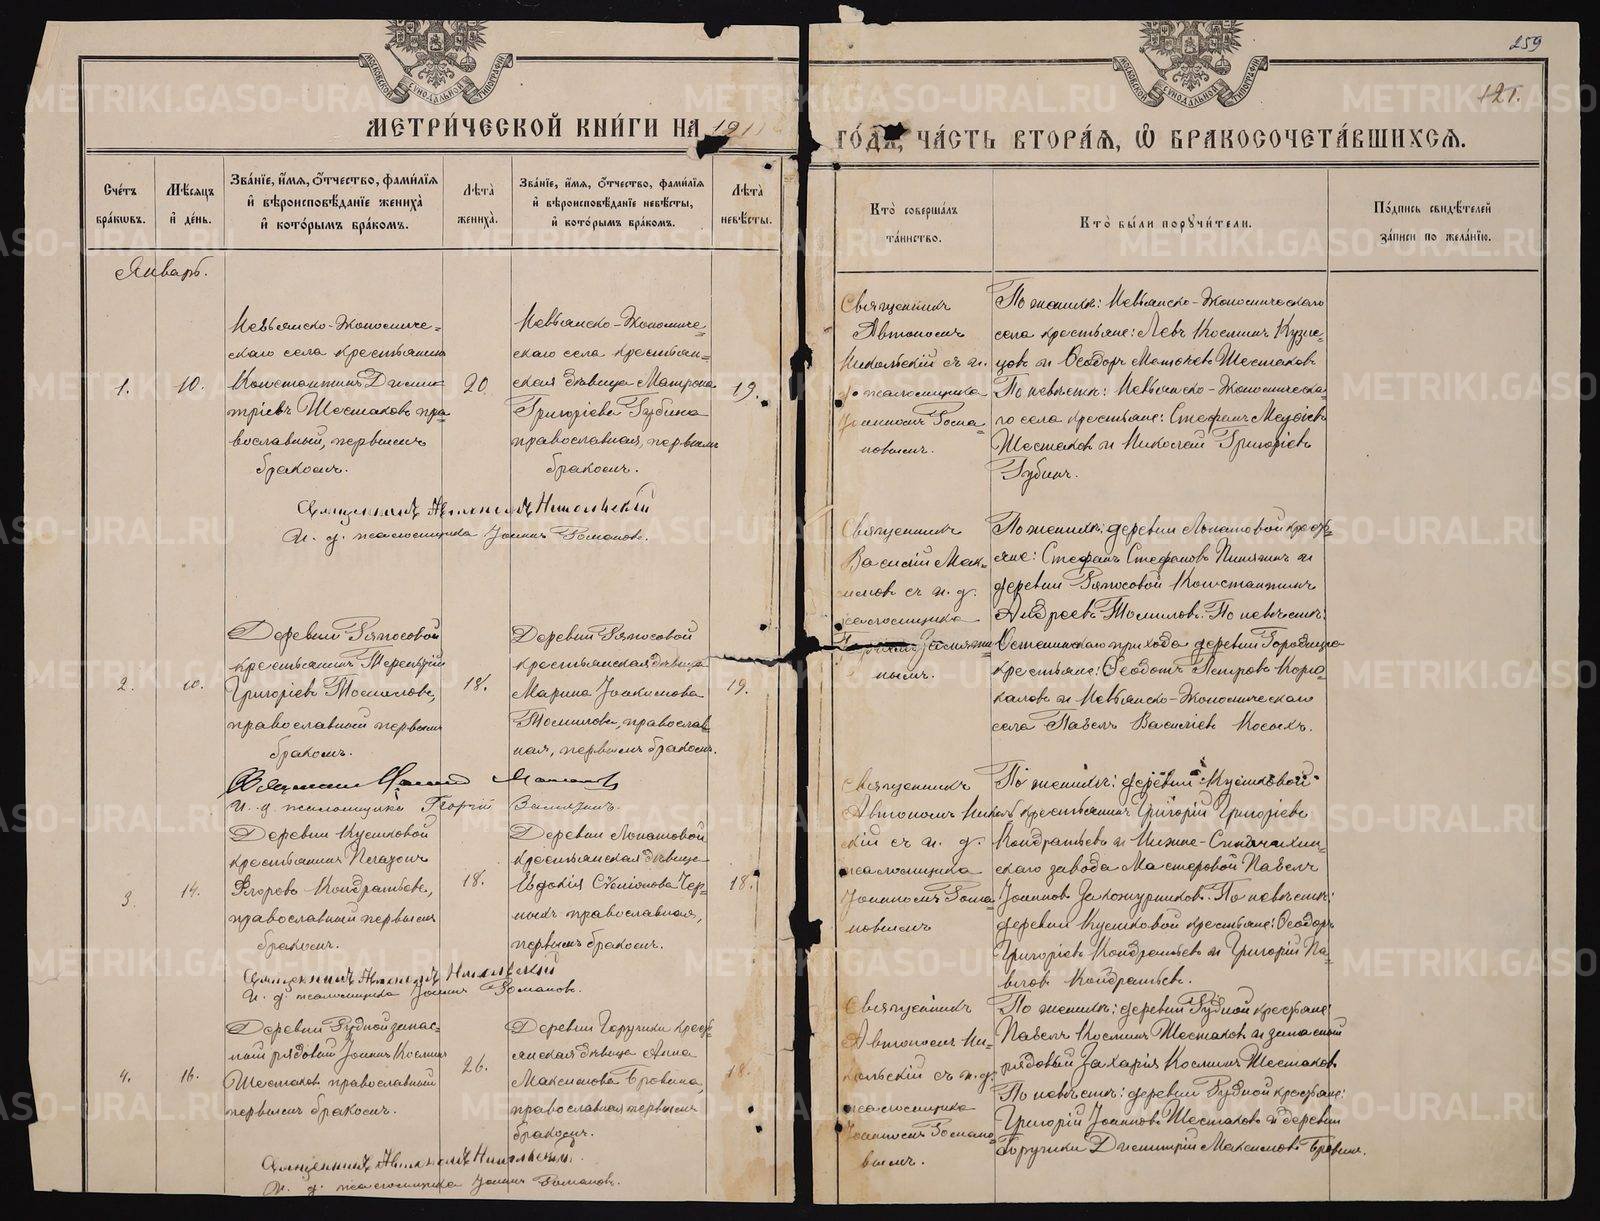 259
121.
МОСКОВСКОЙ СѴНОДАЛЬНОЙ ТИПОГРАФІИ
МОСКОВСКОЙ СѴНОДАЛЬНОЙ ТИПОГРАФІИ
МЕТРИ́ЧЕСКОЙ КНИ́ГИ НА 191
ГО́ДЪ, ЧА́СТЬ ВТОРА́Я, Ѽ БРАКОСОЧЕТА́ВШИХСЯ.
Сче́тъ бра́ковъ.
Мѣ́сяцъ и де́нь.
Зва́ніе, и́мя, о́тчество, фами́лія и вѣроисповѣ́даніе жениха̀ и кото́рымъ бра́комъ.
Лѣ́та жениха̀.
Зва́ніе, и́мя, о́тчество, фами́лія и вѣроисповѣ́даніе невѣ́сты, и кото́рымъ бра́комъ.
Лѣ́та невѣ́сты.
Кто̀ соверша́лъ та́инство.
Кто̀ бы́ли поручи́тели.
По́дпись свидѣ́телей за́писи по жела́нію.
Январь.
1.
10.
Невьянско-Экономиче-
скаго села крестьянинъ
Константинъ Димит-
тріевъ Шестаковъ, пра-
вославный, первымъ
бракомъ.
20
Невьянско-Экономиче-
скаго села крестьян-
ская дѣвица Матрона
Григоріева Губина
православная, первымъ
бракомъ.
19.
Священникъ
Автономъ
Никольскій съ и.
д. псаломщика
Іоанномъ Рома-
новымъ.
По женихѣ: Невьянско-Экономическаго
села крестьяне: Левъ Косминъ Кузне-
цовъ и Ѳеодоръ Шестаковъ
По невѣстѣ: Невьянско-Экономическа-
го села крестьяне: Стефанъ
Шестаковъ и Николай Григоріевъ
Губинъ.
Священникъ Автономъ Никольскій
И. д. псаломщика Іоаннъ Романовъ.
2.
10.
Деревни Ряпосовой
крестьянинъ Терентій
Григоріевъ Томиловъ,
православный первымъ
бракомъ.
18.
Деревни Ряпосовой
крестьянская дѣвица
Марина Іоакимова
Томилова, православ-
ная, первымъ бракомъ.
19.
Священникъ
Василій Мак-
симовъ съ и. д.
псаломщика
Замятни-
нымъ.
По женихѣ: деревни Лопатовой кресть-
яне: Стефанъ Стефановъ и
деревни Ряпосовой Константинъ
Андреевъ Томиловъ. По невѣстѣ:
прихода деревни Городища
крестьяне: Ѳеодотъ Петровъ Кори-
каловъ и Невьянско-Экономическаго
села Павелъ Василіевъ Косыхъ.
Священникъ
И. д. псаломщика Георгій Замятинъ.
3.
14.
Деревни Кушковой
крестьянинъ
Егоровъ Кондратьевъ,
православный первымъ
бракомъ.
18.
Деревни Лопатовой
крестьянская дѣвица
Евдокія Симіонова Чер-
ныхъ православная,
первымъ бракомъ.
18.
Священникъ
Автономъ Николь-
скій съ и. д.
псаломщика
Іоанномъ Рома-
новымъ
По женихѣ: деревни Кушковой
крестьянинъ Григорій Григоріевъ
Кондратьевъ и Нижне-Синячихин-
скаго завода мастеровой Павелъ
Іоанновъ Закожурниковъ. По невѣстѣ:
деревни Кушковой крестьяне: Ѳеодоръ
Григоріевъ Кондратьевъ и Григорій Па-
вловъ Кондратьевъ.
Священникъ Автономъ Никольскій
И. д. псаломщика Іоаннъ Романовъ.
4.
16.
Деревни Рудной запас-
ный рядовый Іоаннъ Косминъ
Шестаковъ православный
первымъ бракомъ.
26.
Деревни Горушки кресть-
янская дѣвица Анна
Максимова Бровина,
православная первымъ
бракомъ.
18.
Священникъ
Автономъ Ни-
кольскій съ и. д.
псаломщика
Іоанномъ Романо-
вымъ.
По женихѣ: деревни Рудной крестьяне:
Павелъ Косминъ Шестаковъ и запасный
рядовый Захарія Косминъ Шестаковъ
По невѣстѣ: деревни Рудной крестьяне:
Григорій Іоанновъ Шестаковъ и деревни
Горушки Димитрій Максимовъ Бровинъ.
Священникъ Автономъ Никольскій.
И. д. псаломщика Іоаннъ Романовъ.
METRIKI.GASO-URAL.RU